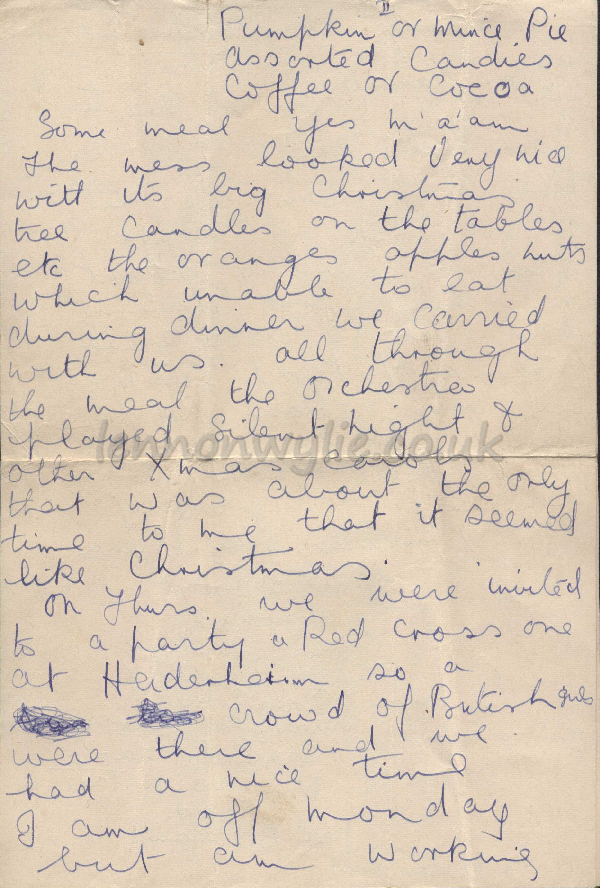 II
Pumpkin or Mince Pie
Assorted Candies
Coffee or Cocoa
Some meal yes m'a'am
The mess looked very nice
with its big Christmas
tree candles on the tables
etc the oranges apples nuts
which unable to eat
during dinner we carried
with us. all through
the meal the orchestra
played Silent night &
other Xmas carols
that was about the only
time to me that it seemed
like Christmas.
On Thurs. we were invited
to a party a Red Cross one
at Heidenheim so a
crowd of British girls
were there and we
had a nice time
I am off Monday
but am working
lennonwylie.co.uk